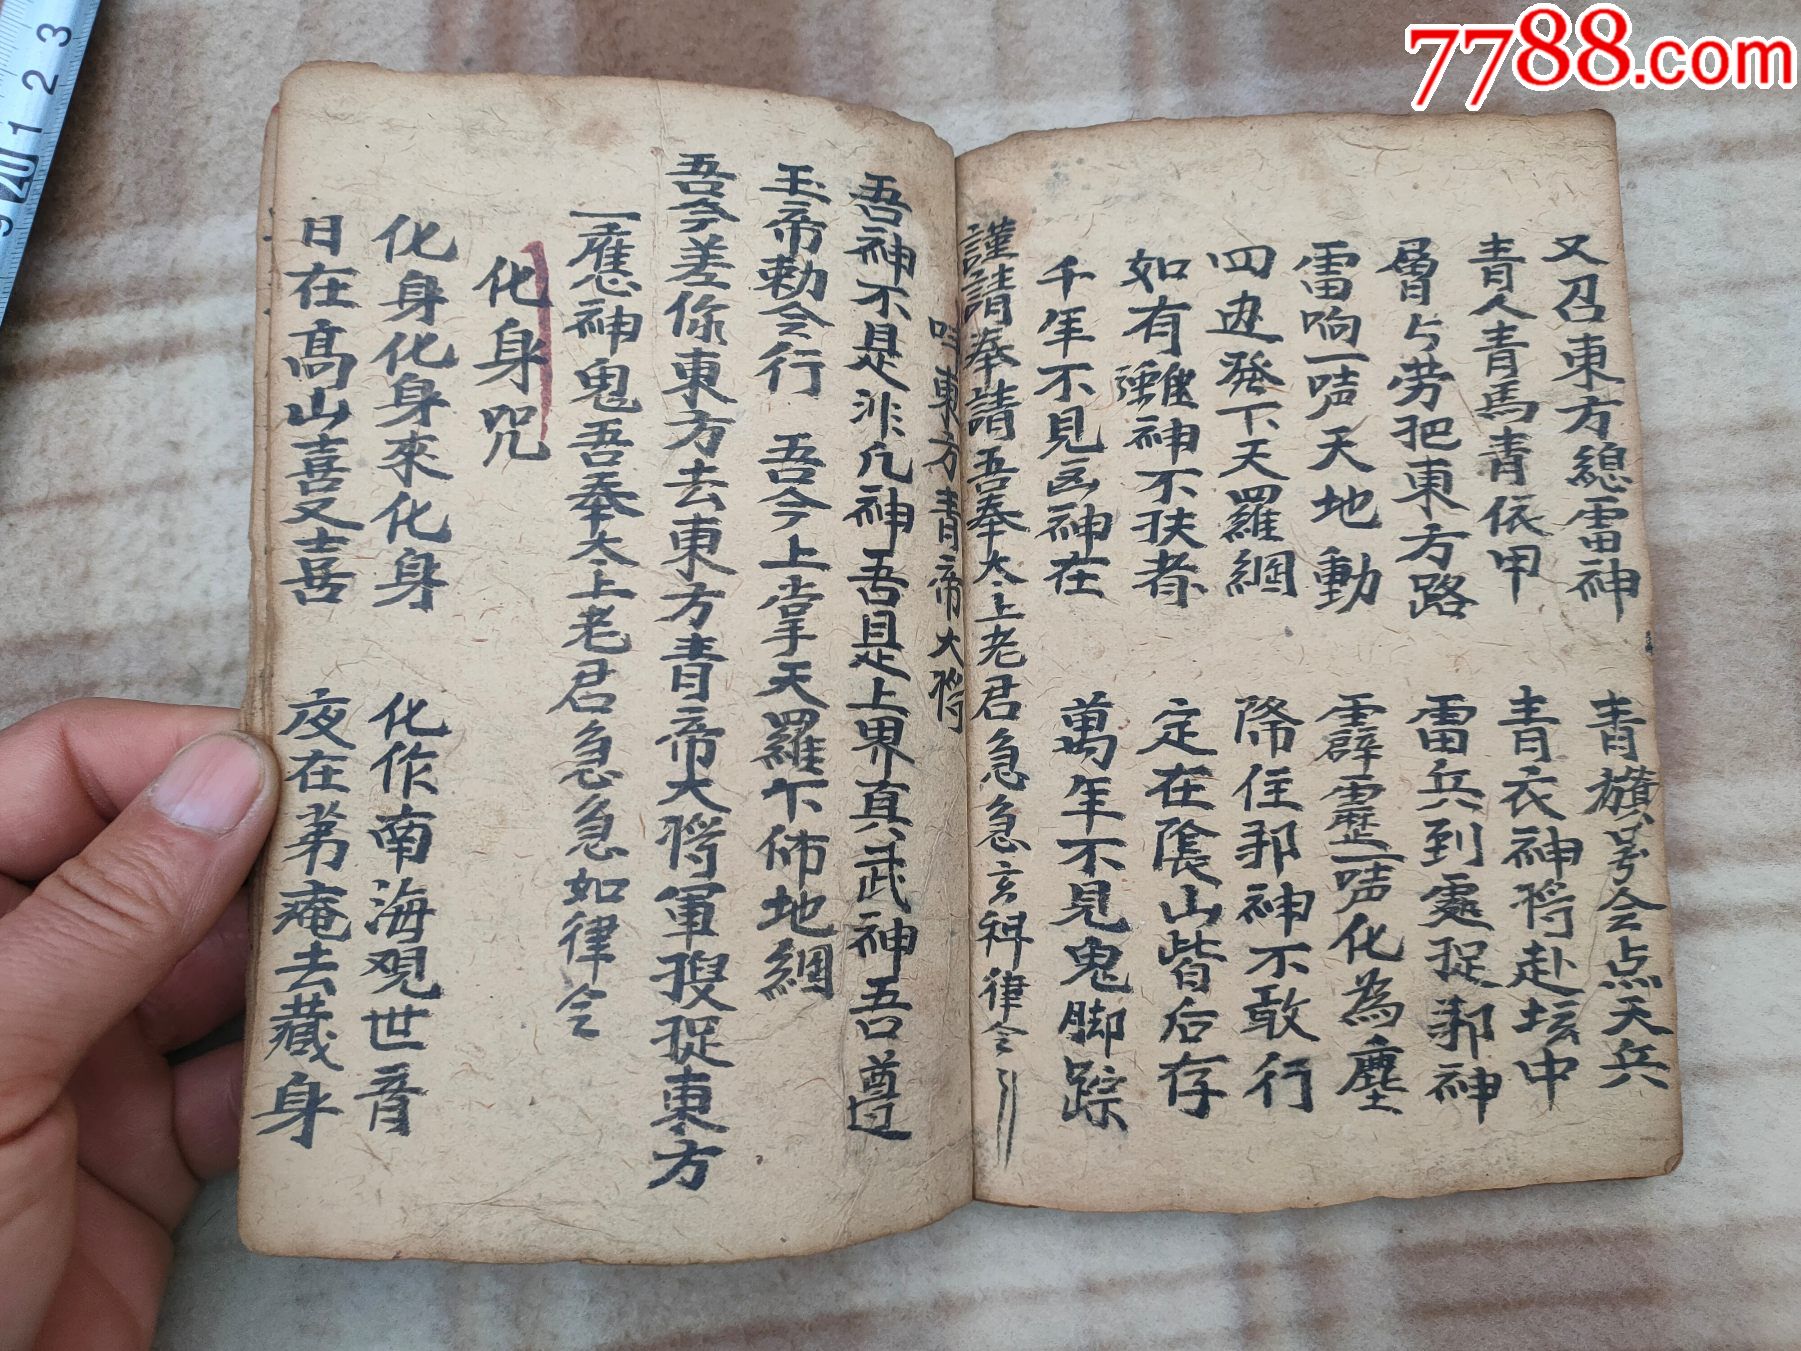 7788.com
3
2
1
20
9
又召東方總雷神 青旗号令点天兵
青人青馬青依甲 青衣神將赴坛中
層占劳把東方路 雷兵到處捉邪神
雷响一声天地動 霹靂一声化為塵
四边發下天羅網 降住邪神不敢行
如有難神不扶者 定在陰山皆后存
千年不見凶神在 萬年不見鬼脚踪
謹請奉請吾奉太上老君急急玄科律令
東方青帝大將
吾神不是非凡神吾是上界真武神吾遵
玉帝勅令行 吾今上掌天羅下佈地網
吾今差你東方去東方青帝大將軍捉東方
一應神鬼吾奉太上老君急急如律令
化身咒
化身化身來化身 化作南海观世音
日在高山喜又喜 夜在第庵去藏身